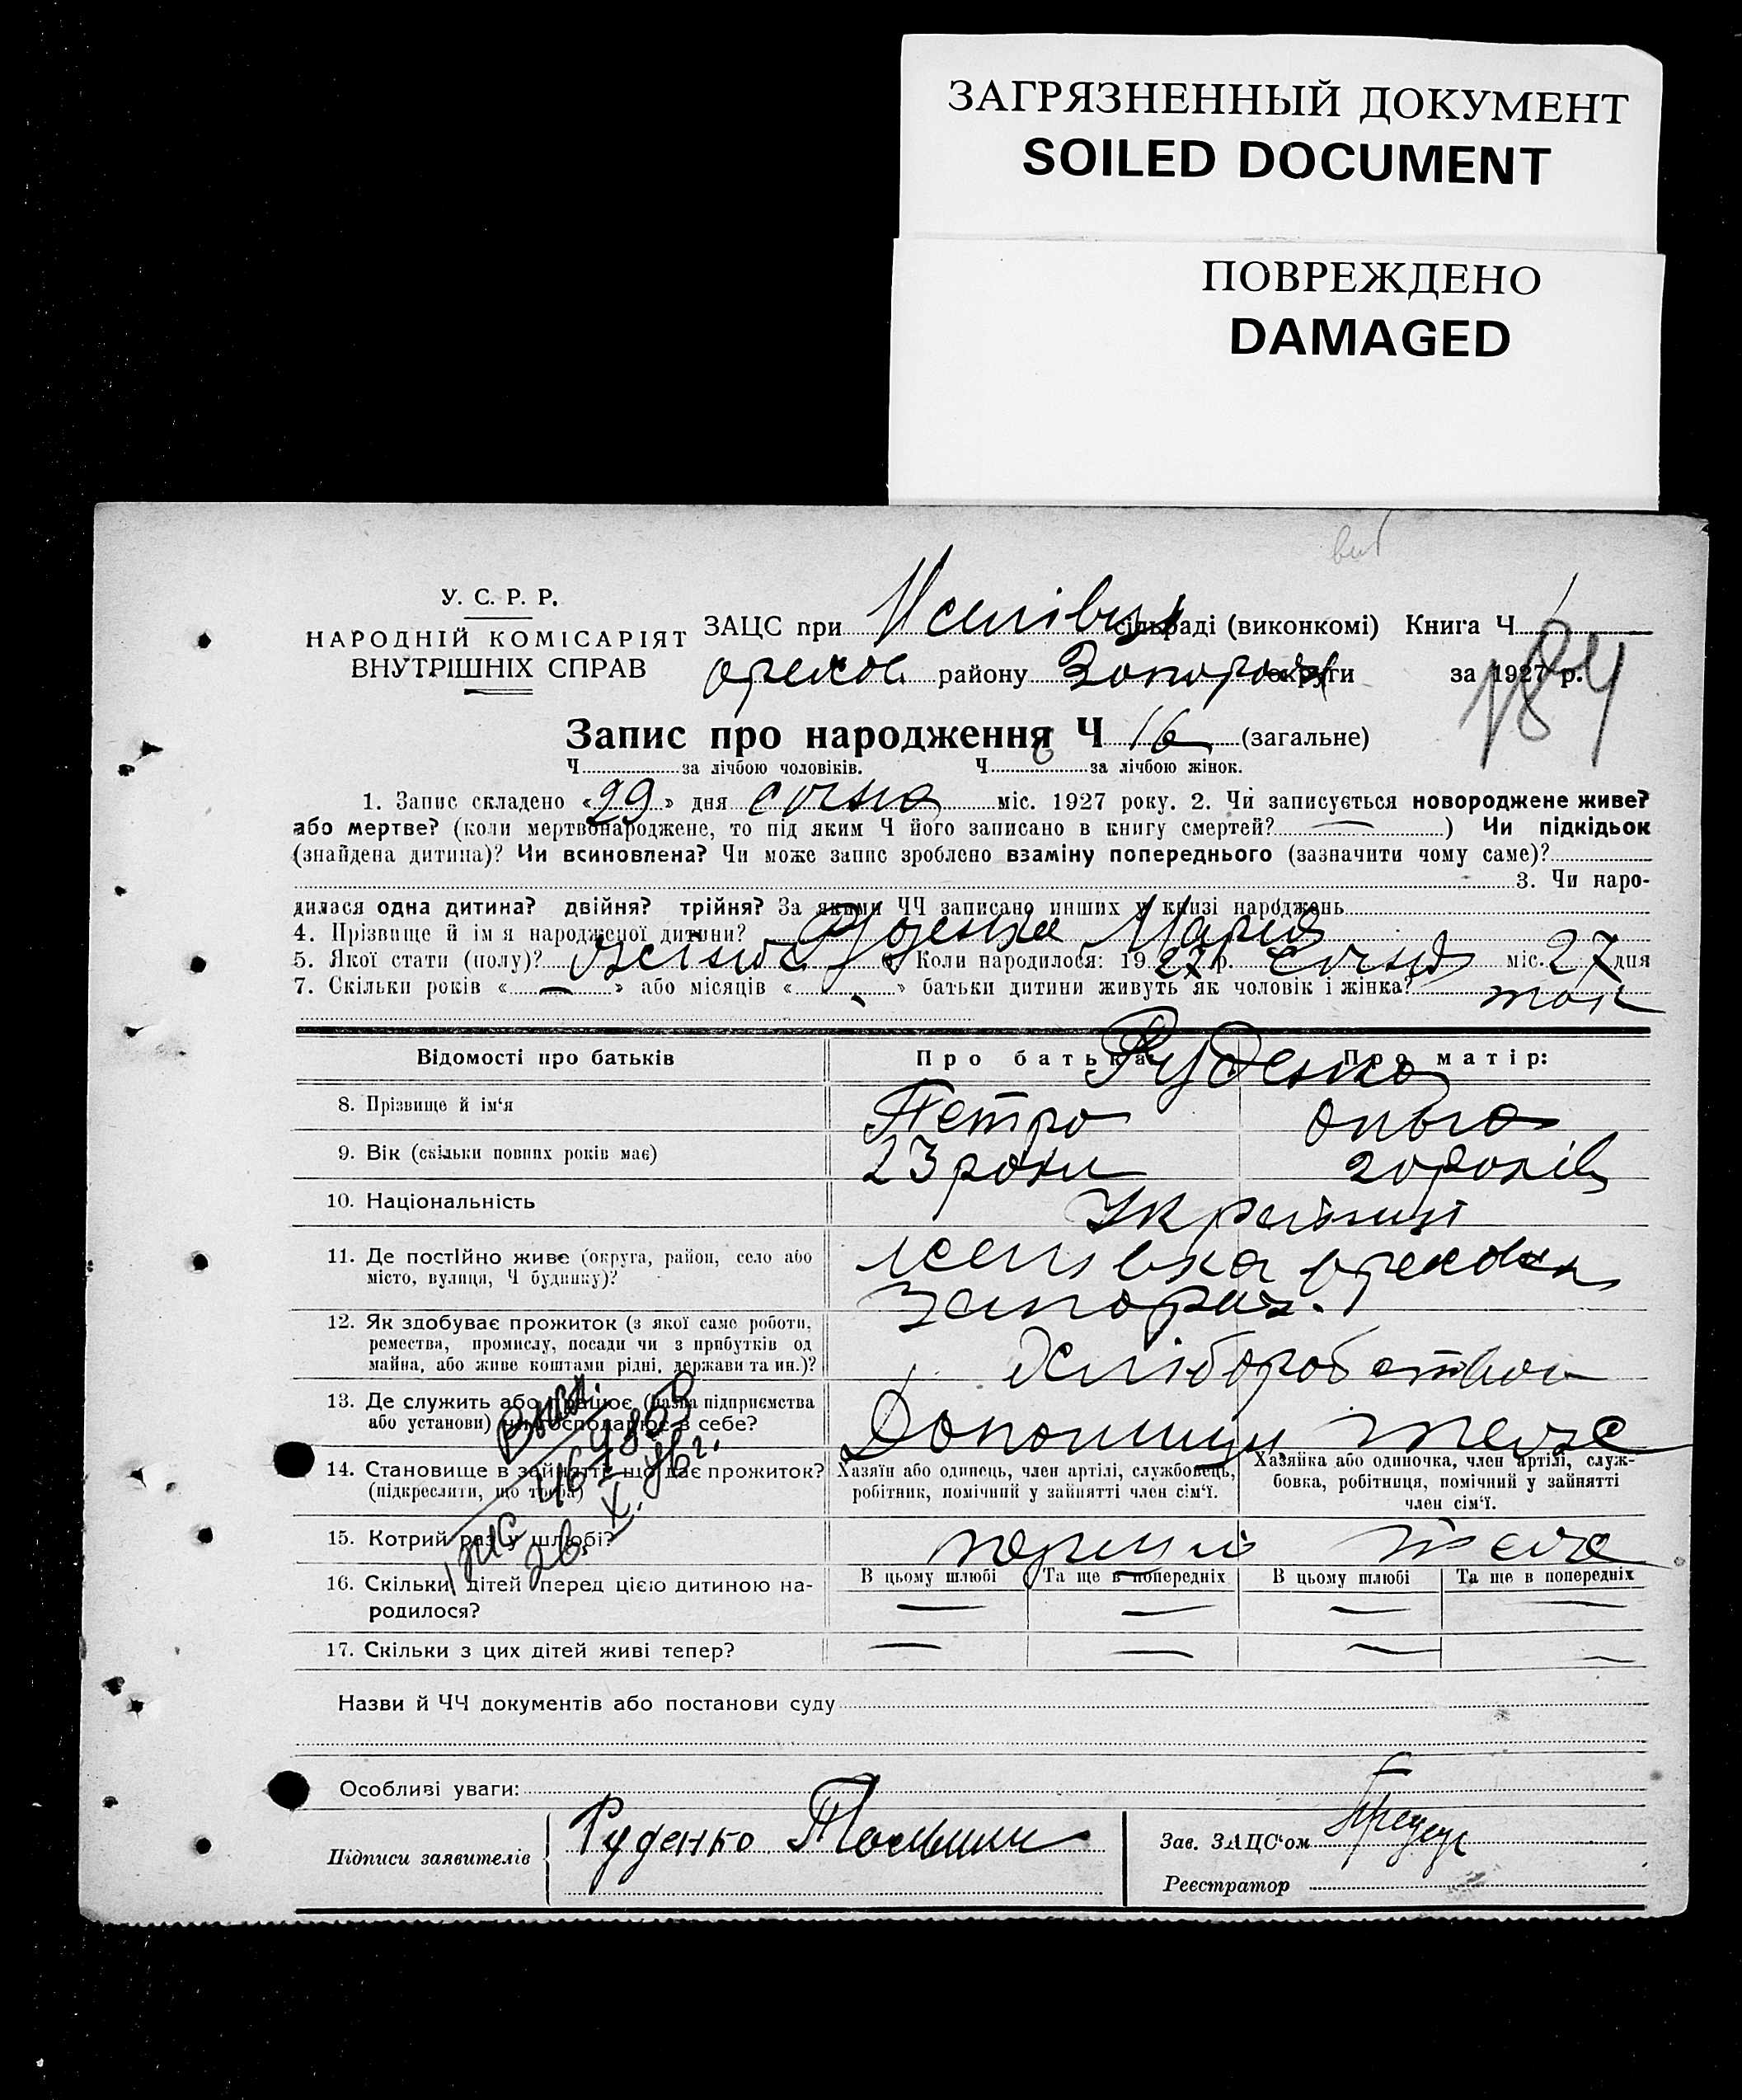 ЗАГРЯЗНЕННЫЙ ДОКУМЕНТ
SOILED DOCUMENT
ПОВРЕЖДЕНО
DAMAGED
У. С. Р. Р.
НАРОДНІЙ КОМІСАРІЯТ
ВНУТРІШНІХ СПРАВ
ЗАЦС при сільраді (виконкомі) Книга Ч
Орехов. району Запорож округи за 1927 р.
184
Запис про народження Ч 16 (загальне)
Ч за лічбою чоловіків. Ч за лічбою жінок.
1. Запис складено «29» дня січня міс. 1927 року. 2. Чи записується новороджене живе?
або мертве? (коли мертвонароджене, то під яким Ч його записано в книгу смертей? —) Чи підкідьок
(знайдена дитина)? Чи всиновлена? Чи може запис зроблено взаміну попереднього (зазначити чому саме)?
3. Чи наро-
дилася одна дитина? двійня? трійня? За якими ЧЧ записано инших у книзі народжень
4. Прізвище й ім я народженої дитини? Руденко Марія
5. Якої стати (полу)? жіноч. Коли народилося: 1927 р. січня міс. 27 дня
7. Скільки років «—» або місяців «-» батьки дитини живуть як чоловік і жінка?
Відомості про батьків Про батька: Про матір:
Руденко
8. Прізвище й ім'я Петро Ольга
9. Вік (скільки повних років має) 23 роки 20 років
10. Національність Українці
11. Де постійно живе (округа, район, село або
місто, вулиця, Ч будинку)?
Запорож.
12. Як здобуває прожиток (з якої саме роботи,
ремества, промислу, посади чи з прибутків од
майна, або живе коштами рідні, держави та ин.)?
Хліборобством
13. Де служить або працює (назва підприємства
або установи) чи господарює в себе?
теже
14. Становище в зайнятті що дає прожиток?
(підкреслити, що треба)
Хазяїн або одинець, член артілі, службовець,
робітник, помічний у зайнятті член сім'ї.
Хазяйка або одиночка, член артілі, служ-
бовка, робітниця, помічний у зайнятті
член сім'ї.
15. Котрий раз у шлюбі? перший теже
16. Скільки дітей перед цією дитиною на-
родилося?
В цьому шлюбі Та ще в попередніх В цьому шлюбі Та ще в попередніх
— — — —
17. Скільки з цих дітей живі тепер? — — — —
Назви й ЧЧ документів або постанови суду
Особливі уваги:
Підписи заявителів Руденко
Зав. ЗАЦС'ом
Реєстратор